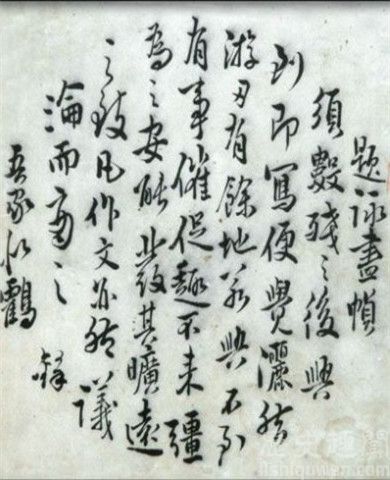 題畫幀
須數殘之後興
到即寫便覺灑然
游刃有餘地若興不到
有事催促趣不來彊
為之安能致其曠遠
之致凡作文亦然議
淪而之
吾家鶴
历史趣闻
lishiquwen.com